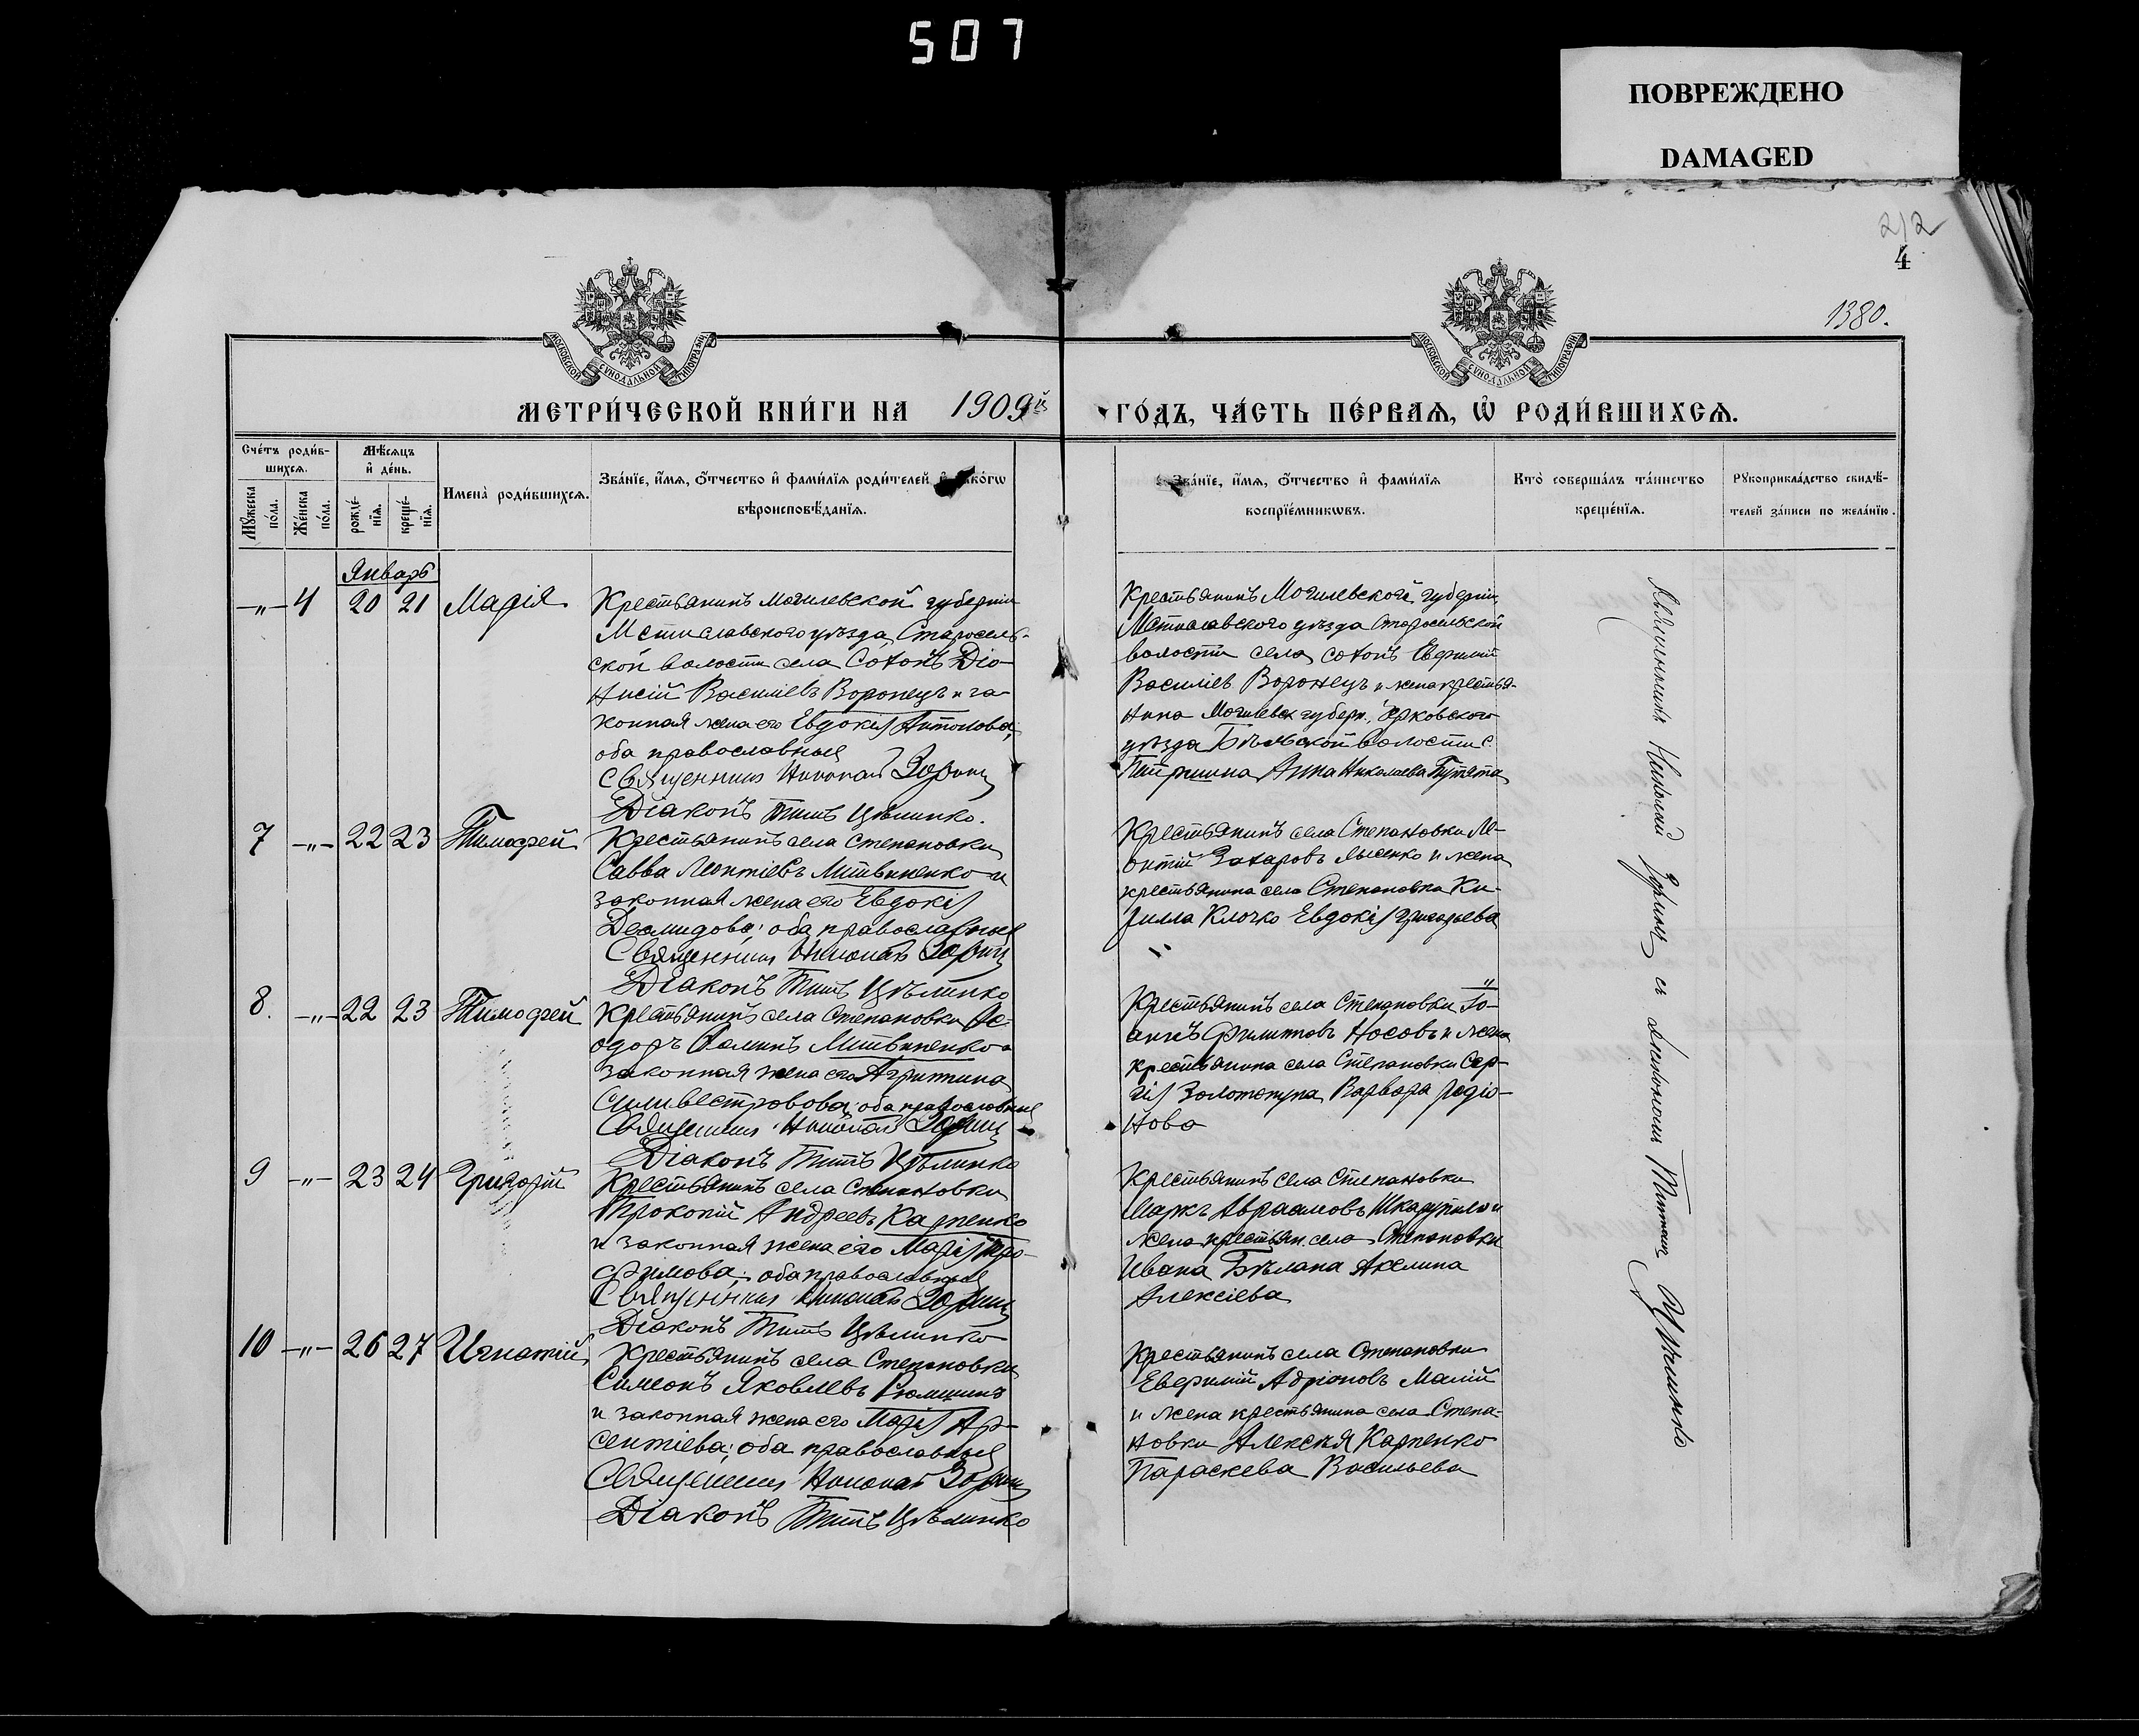 507
ПОВРЕЖДЕНО
DAMAGED
212
4
1380.
МОСКОВСКОЙ СУНОДАЛЬНОЙ ТИПОГРАФІИ
МОСКОВСКОЙ СУНОДАЛЬНОЙ ТИПОГРАФІИ
МЕТРИ́ЧЕСКОЙ КНИ́ГИ НА 1909й ГО́ДЪ, ЧА́СТЬ ПЕ́РВАѦ, Ѡ҆ РОДИ́ВШИХСѦ.
Сче́тъ роди́в-
шихсѧ.
Мѣ́сѧцъ
и҆ де́нь.
Мꙋ́жеска по́ла.
Же́нска по́ла.
рожде́-
нїѧ.
креще́-
нїѧ.
Имена̀ роди́вшихсѧ.
Зва́нїе, и҆́мѧ, ѻ҆́тчество и҆ фами́лїѧ роди́телей и҆ како́гѡ
вѣроисповѣ́данїѧ.
Зва́нїе, и҆́мѧ, ѻ҆́тчество и҆ фами́лїѧ
воспрїе́мникѡвъ.
Кто̀ соверша́лъ та́инство
креще́нїѧ.
Рꙋкоприкла́дство свидѣ́-
телей за́писи по жела́нїю.
Январь
—„— 4 20 21 Марія
Крестьянинъ Могилевской губерніи
Мстиславского уѣзда, Старосель-
ской волости села Сохонъ Діо-
нисій Василіевъ Воронецъ и за-
конная жена его Евдокія Антонова;
оба православные
Священникъ Николай Зоринъ
Діаконъ Титъ Цѣлинко.
Крестьянинъ Могилевской губерніи,
Мстиславского уѣзда Старосельской
волости села Сохонъ Евфимій
Василіев. Воронецъ и жена крестья-
нина Могилевск губерн.,
уѣзда волости с.
Анна Николаева
7 —„— 22 23 Тимофей
Крестьянинъ села Степановки
Савва Леонтіевъ Литвиненко и
законная жена его Евдокія
Деомидова; оба православные
Священникъ Николай Зоринъ
Діаконъ Титъ Цѣлинко
Крестьянинъ села Степановки Ле-
онтій Захаровъ Лысенко и жена
крестьянина села Степановки Ки-
рилла Клочко Евдокія Григорьева
8. —„— 22 23 Тимофей
Крестьянинъ села Степановки Ѳе-
одоръ Ѳоминъ Литвиненко и
законная жена его Агрипина
Силивестровова; оба православные
Священникъ Николай Зоринъ
Діаконъ Титъ Цѣлинко
Крестьянинъ села Степановки Іо-
аннъ Филиповъ Носовъ и жена
крестьянина села Степановки Сер-
гія Золотопупа Варвара Родіо-
нова
9 —„— 23 24 Григорій
Крестьянинъ села Степановки
Прокопій Андреевъ Карпенко
и законная жена его Марія Тро-
фимова; оба православные
Священникъ Николай Зоринъ
Діаконъ Титъ Цѣлинко
Крестьянинъ села Степановки
Маркъ Авраамовъ Шкарупило и
жена крестьян. села Степановки
Ивана Бѣлана Акелина
Алексіева
10 —„— 26 27 Игнатій
Крестьянинъ села Степановки
Симеонъ Яковлевъ Рюмшинъ
и законная жена его Марія Ар-
сентіева; оба православные
Священникъ Николай Зоринъ
Діаконъ Титъ Цѣлинко
Крестьянинъ села Степановки
Евфимій Адріановъ Малій
и жена крестьянина села Степа-
новки Алексѣя Карпенко
Параскева Васильева
Священникъ Николай Зоринъ съ діакономъ Титомъ Цѣлинко